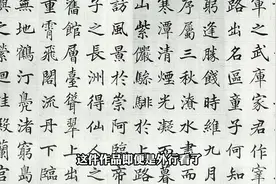 軍之武庫家君作宰
路出名區童子何知
躬逢勝餞時維九月
序屬三秋潦水盡而
寒潭清煙光凝而暮
山紫儼驂騑於上路
訪風景於崇阿臨帝
子之長洲得仙人之
舊館層臺聳翠上出
重霄飛閣流丹下臨
無地鶴汀鳧渚窮島
這件作品即便是外行看了